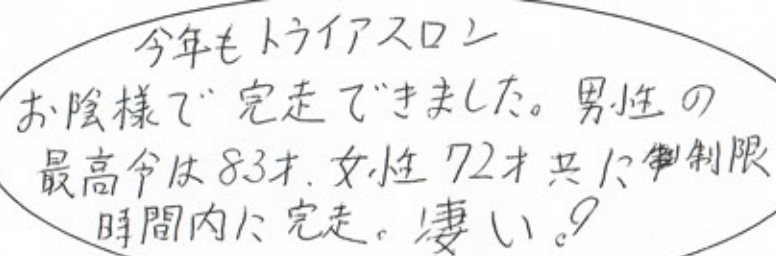 今年もトライアスロン
お陰様で完走できました。男性の
最高令は83才、女性72才共に制限
時間内に完走。凄い。